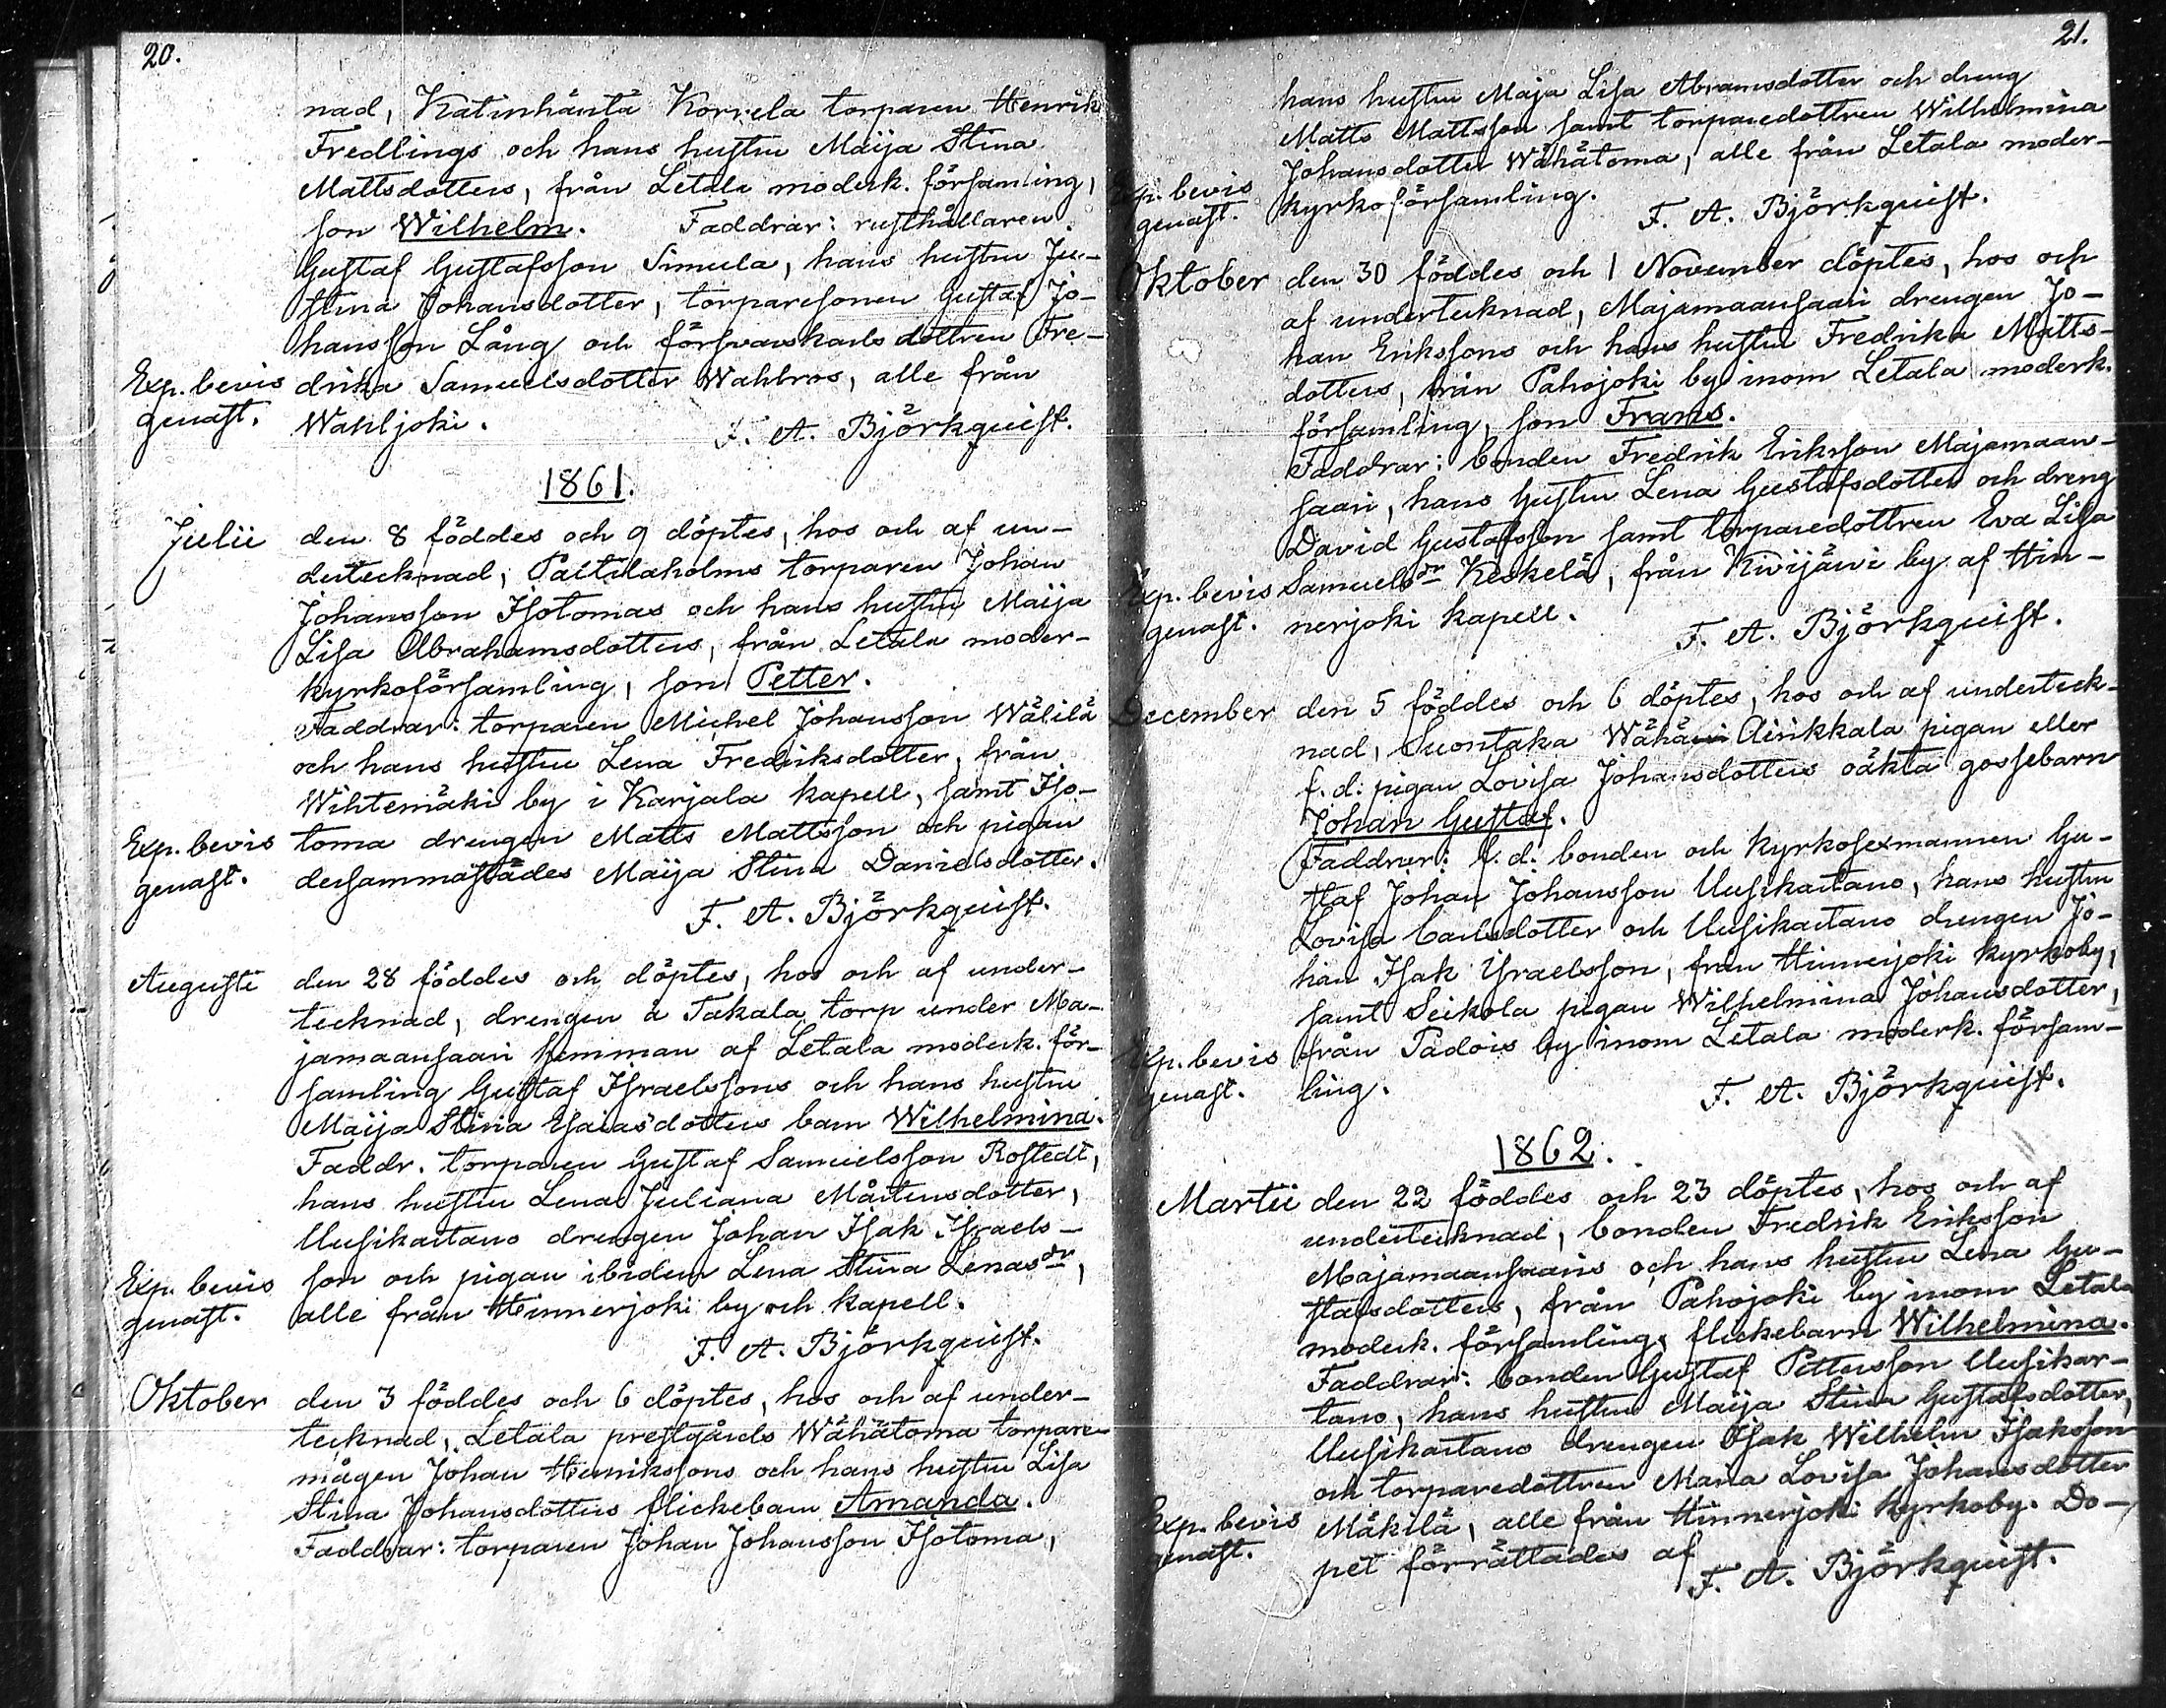 20.
nad, Katinhäntä Korvela torparen Henrik
Fredlings och hans hustru Maija Stina
Mattsdotters, från Letala moderk. församling,
son Wilhelm. Faddrar: rusthållaren
Gustaf Gustafsson Simula, hans hustru Ju-
stina Johansdotter, torparesonen Gustaf Jo-
hansson Lång och försvarskarlsdottren Fre-
Exp. bevis drika Samuelsdotter Wahlros, alle från
genast. Wahljoki. F. A. Björkquist.
1861.
Julii den 8 föddes och 9 döptes, hos och af un-
dertecknad, Paitilaholms torparen Johan
Johansson Isotomas och hans hustru Maija
Lisa Abrahamsdotters, från Letala moder-
kyrkoförsamling, son Petter.
Faddrar: torparen Michel Johansson Wälilä
och hans hustru Lena Fredriksdotter, från
Wihtemäki by i Karjala kapell, samt Iso-
Exp. bevis toma drengen Matts Mattsson och pigan
genast. dersammastädes Maija Stina Danielsdotter.
F. A. Björkquist.
Augusti den 28 föddes och döptes, hos och af under-
tecknad, drengen å Takala torp under Ma-
jamaansaari hemman af Letala moderk. för-
samling Gustaf Israelssons och hans hustru
Maija Stina Esaiasdotters barn Wilhelmina.
Faddr. torparen Gustaf Samuelsson Rostedt,
hans hustru Lena Juliana Mårtensdotter,
Uusikartano drengen Johan Isak Israels-
Exp. bevis son och pigan ibidem Lena Stina Lenasdr,
genast. alle från Hinnerjoki by och kapell.
F. A. Björkquist.
Oktober den 3 föddes och 6 döptes, hos och af under-
tecknad, Letala prestgårds Wähätoma torpare-
mågen Johan Henrikssons och hans hustru Lisa
Stina Johansdotters flickebarn Amanda.
Faddrar: torparen Johan Johansson Isotoma,
21.
hans hustru Maja Lisa Abramsdotter och dreng
Matts Mattsson samt torparedottren Wilhelmina
Johansdotter Wähätoma, alle från Letala moder-
Exp. bevis kyrkoförsamling.
genast. F. A. Björkquist.
Oktober den 30 föddes och 1 November döptes, hos och
af undertecknad, Majamaansaari drengen Jo-
han Erikssons och hans hustru Fredrika Matts-
dotters, från Pahojoki by inom Letala moderk.
församling, son Frans.
Faddrar: bonden Fredrik Eriksson Majamaan-
saari, hans hustru Lena Gustafsdotter och dreng
David Gustafsson samt torparedottren Eva Lisa
Exp. bevis Samuelsdr Keskelä, från Kivijärvi by af Hin-
genast. nerjoki kapell.
F. A. Björkquist.
December den 5 föddes och 6 döptes, hos och af underteck-
nad, Suontaka Wähä Airikkala pigan eller
f. d. pigan Lovisa Johansdotters oäkta gossebarn
Johan Gustaf.
Faddrar: f. d. bonden och kyrkosexmannen Gu-
staf Johan Johansson Uusikartano, hans hustru
Lovisa Carlsdotter och Uusikartano drengen Jo-
han Isak Israelsson, från Hinnerjoki kyrkoby,
samt Seikola pigan Wilhelmina Johansdotter,
Exp. bevis från Padois by inom Letala moderk. försam-
genast. ling.
F. A. Björkquist.
1862.
Martii den 22 föddes och 23 döptes, hos och af
undertecknad, bonden Fredrik Eriksson
Majamaansaaris och hans hustru Lena Gu-
stafsdotters, från Pahojoki by inom Letala
moderk. församling, flickebarn Wilhelmina.
Faddrar: bonden Gustaf Pettersson Uusikar-
tano, hans hustru Maija Stina Gustafsdotter,
Uusikartano drengen Isak Wilhelm Isaksson
och torparedottren Maria Lovisa Johansdotter
Exp. bevis Mäkilä, alle från Hinnerjoki kyrkoby. Do-
genast. pet förrättades af
F. A. Björkquist.